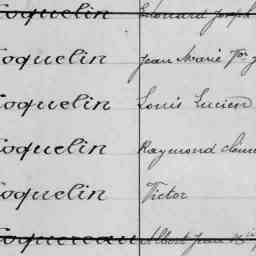 Coquelin Edouard Joseph
Coquelin Jean Marie
Coquelin Louis Lucien
Coquelin Raymond
Coquelin Victor
Coquereau Albert Jean